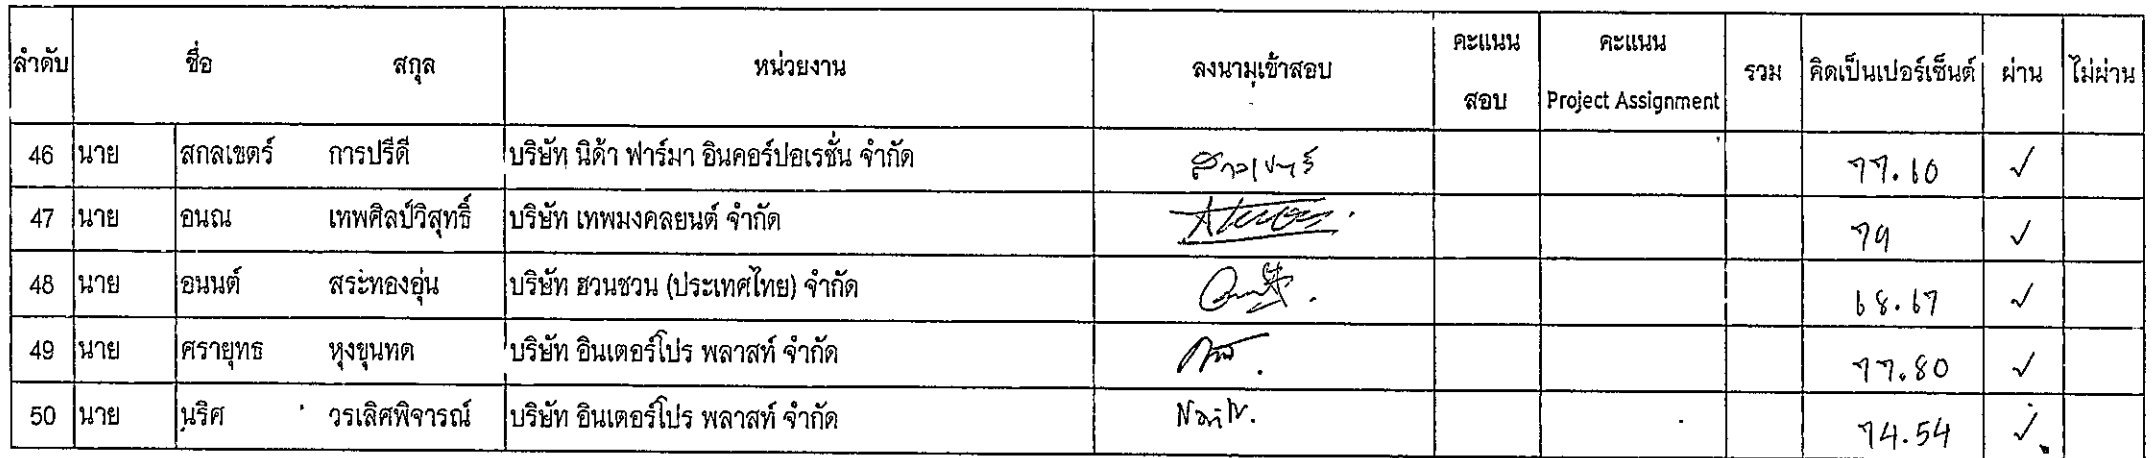 ลำดับ ชื่อ สกุล หน่วยงาน ลงนามเข้าสอบ คะแนน สอบ คะแนน Project Assignment รวม คิดเป็นเปอร์เซ็นต์ ผ่าน ไม่ผ่าน
46 นาย สกลเขตร์ การปรีดี บริษัท นิด้า ฟาร์มา อินคอร์ปอเรชั่น จำกัด สกลเขตร์ 77.10 ✓
47 นาย อนณ เทพศิลป์วิสุทธิ์ บริษัท เทพมงคลยนต์ จำกัด 79 ✓
48 นาย อนนต์ สระทองอุ่น บริษัท ฮวนชวน (ประเทศไทย) จำกัด 68.67 ✓
49 นาย ศรายุทธ หุงขุนทด บริษัท อินเตอร์โปร พลาสท์ จำกัด 77.80 ✓
50 นาย นริศ วรเลิศพิจารณ์ บริษัท อินเตอร์โปร พลาสท์ จำกัด 74.54 ✓